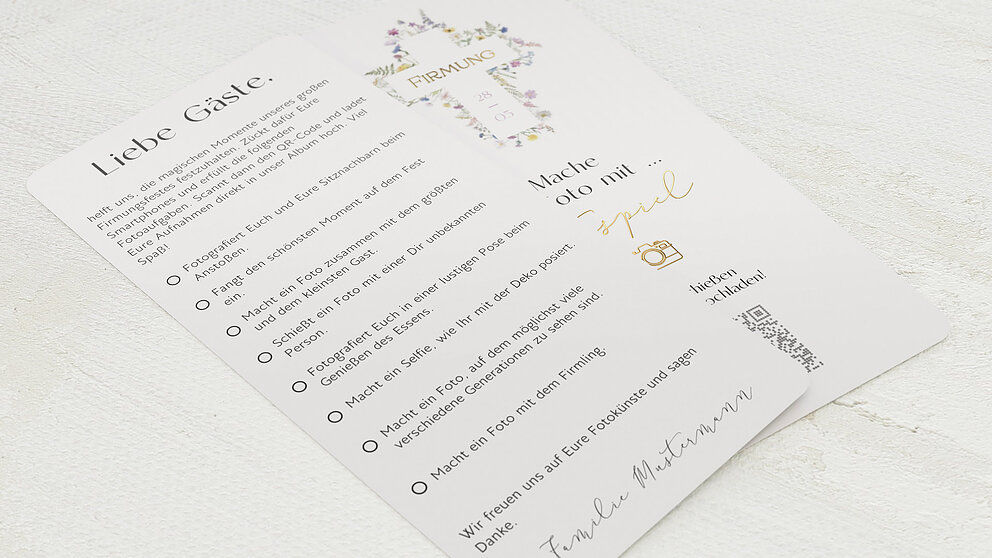 Liebe Gäste,
helft uns, die magischen Momente unseres großen
Firmungsfestes festzuhalten. Zückt dafür Eure
Smartphones und erfüllt die folgenden
Fotoaufgaben. Scannt dann den QR-Code und ladet
Eure Aufnahmen direkt in unser Album hoch. Viel
Spaß!
Fotografiert Euch und Eure Sitznachbarn beim
Anstoßen.
Fangt den schönsten Moment auf dem Fest
ein.
Macht ein Foto zusammen mit dem größten
und dem kleinsten Gast.
Schießt ein Foto mit einer Dir unbekannten
Person.
Fotografiert Euch in einer lustigen Pose beim
Genießen des Essens.
Macht ein Selfie, wie Ihr mit der Deko posiert.
Macht ein Foto, auf dem möglichst viele
verschiedene Generationen zu sehen sind.
Macht ein Foto mit dem Firmling.
Wir freuen uns auf Eure Fotokünste und sagen
Danke.
Familie Mustermann
FIRMUNG
28
05
Mache
oto mit ...
spiel
hießen
ochladen!